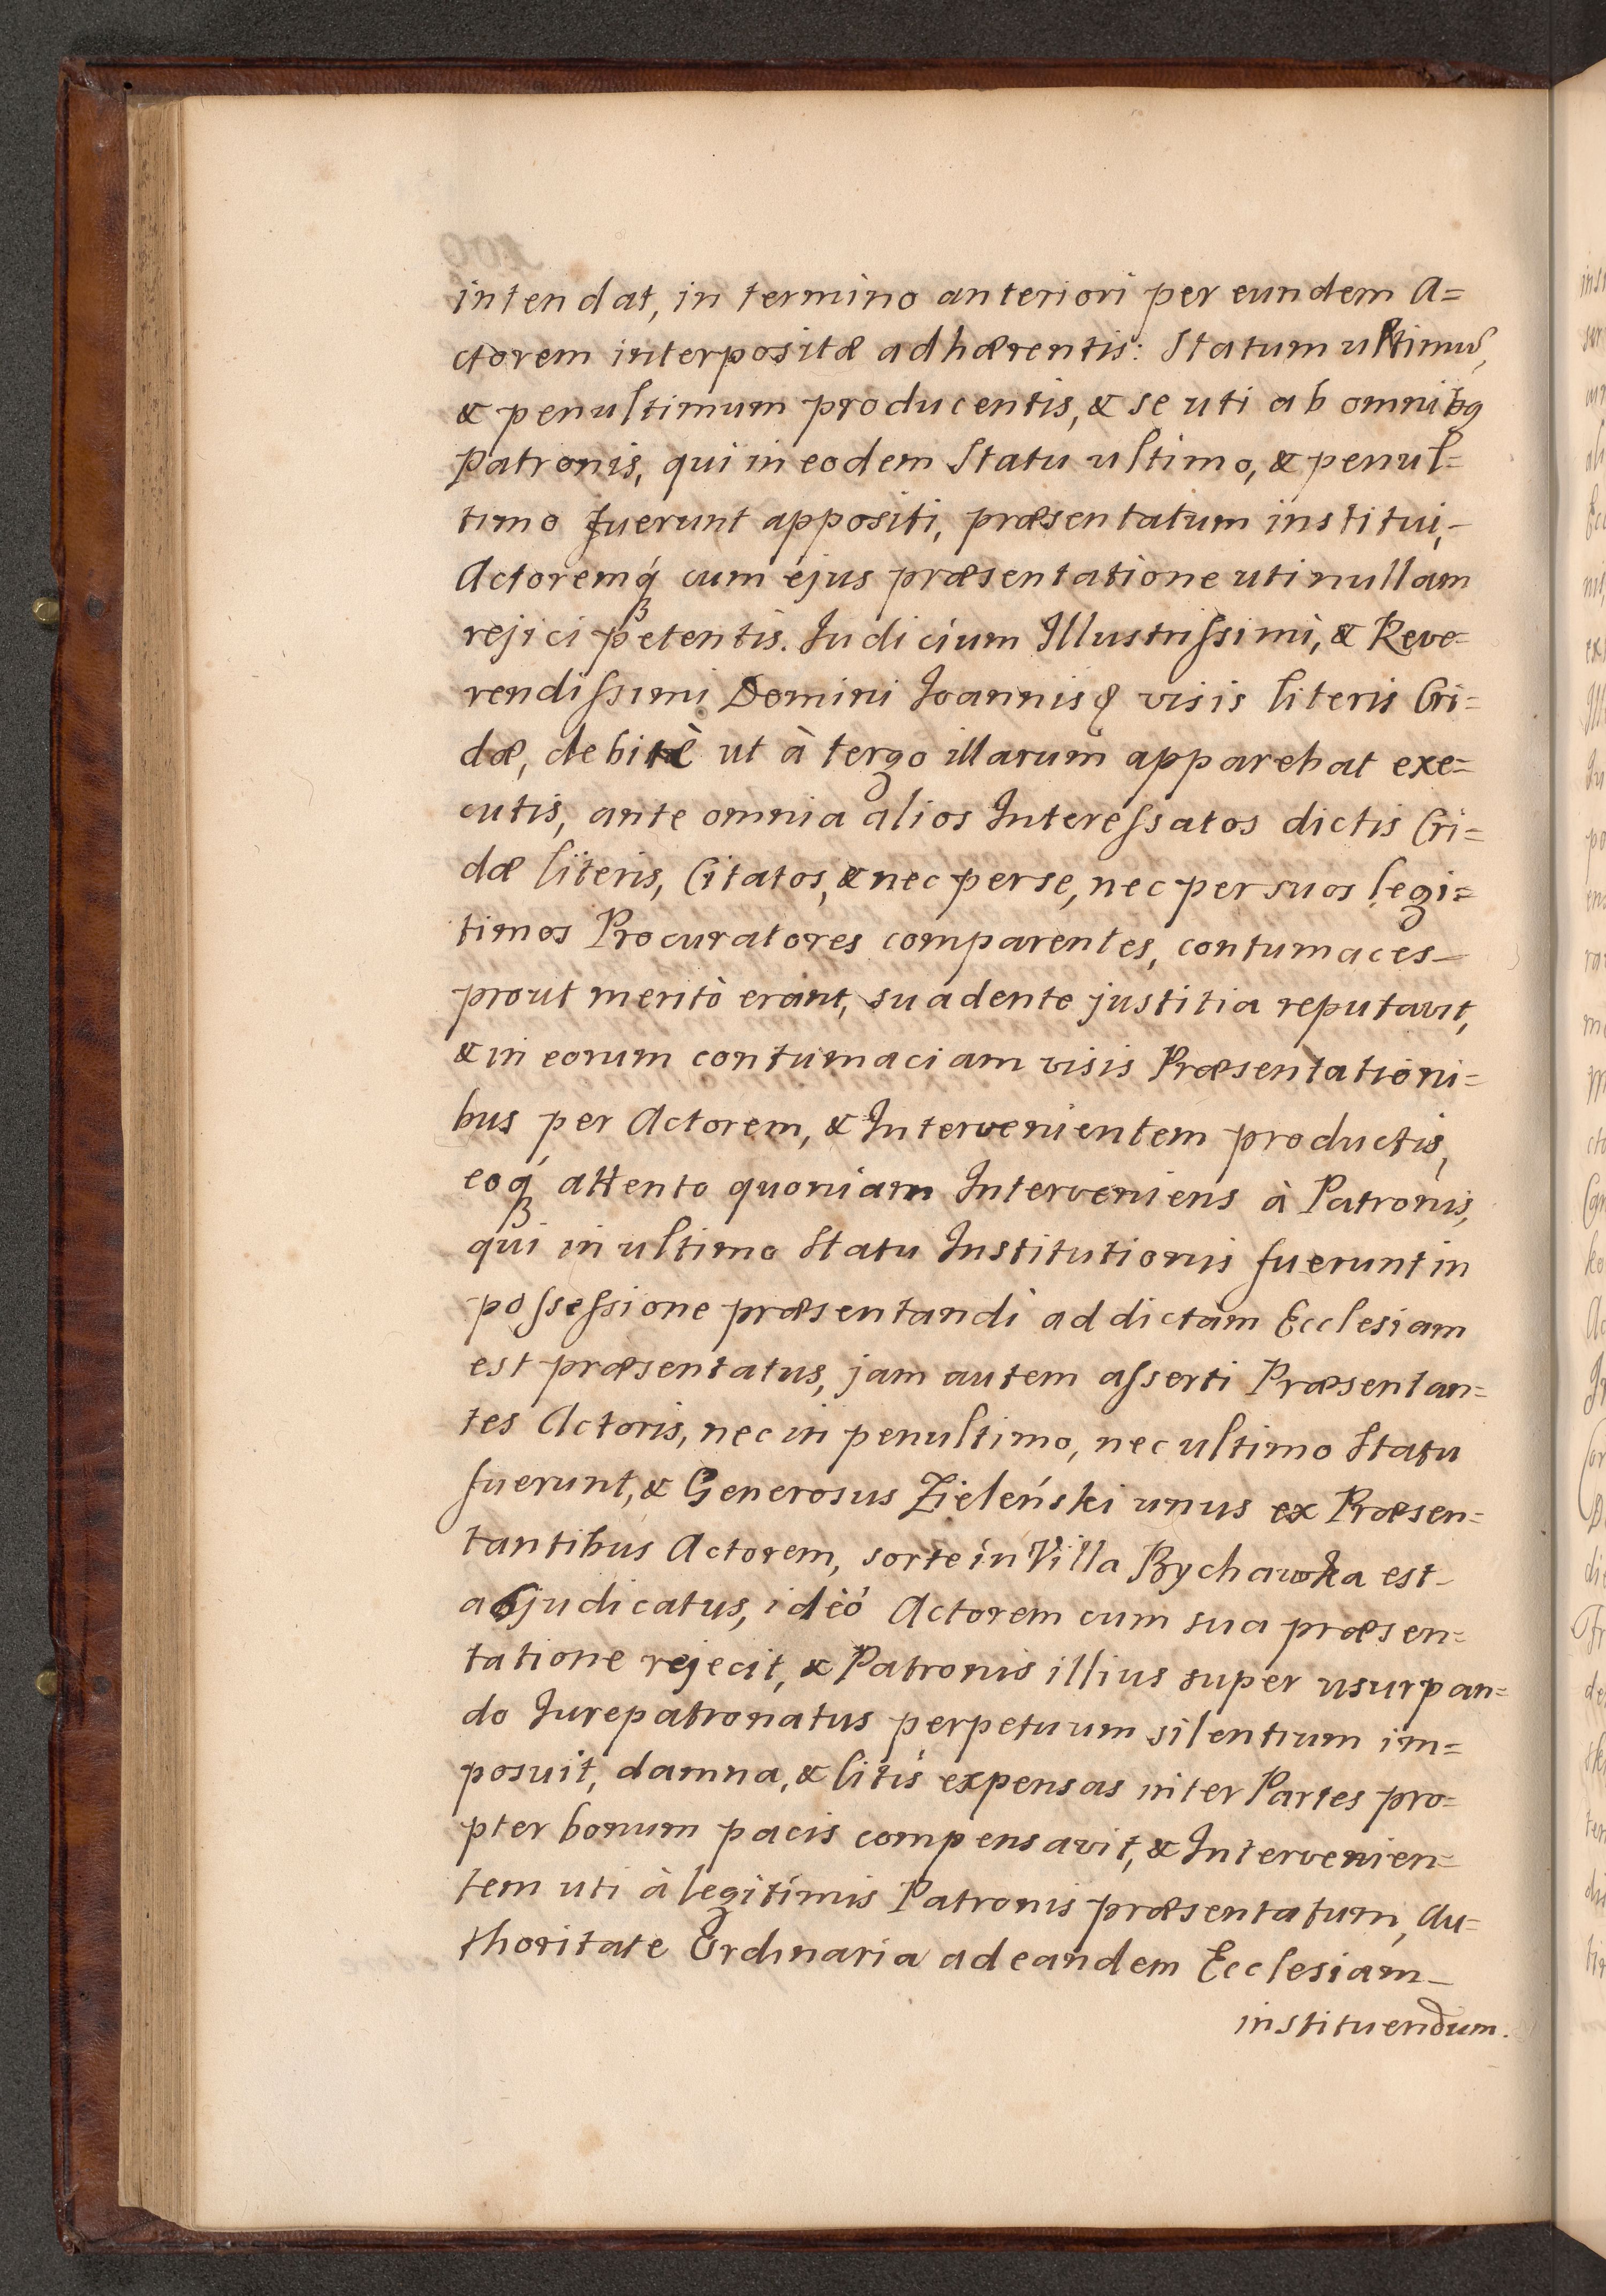 intendat, in termino anteriori per eundem A=
ctorem interpositæ adhærentis: Statum ultimũ,
& penultimum producentis, & se uti ab omnibq
Patronis, qui in eodem Statu ultimo, & penul=
timo fuerunt appositi, præsentatum institui,-
Actoremq́ꝫ cum ejus præsentatione uti nullam
rejici petentis. Judicium Illustrissimi, & Reve=
rendissimi Domini Joannis& visis literis Cri=
dæ, debitè ut à tergo illarum apparebat exe=
cutis, ante omnia alios Interessatos dictis Cri=
dæ literis, Citatos, & nec per se, nec per suos legi=
timos Procuratores comparentes, contumaces-
prout meritò erant, suadente justitia reputavit,
& in eorum contumaciam visis Præsentationi=
bus per Actorem, & Intervenientem productis,
eoq́ꝫ attento quoniam Interveniens à Patronis,
qui in ultimo Statu Institutionis fuerunt in
possessione præsentandi ad dictam Ecclesiam
est præsentatus, jam autem asserti Præsentan=
tes Actoris, nec in penultimo, nec ultimo Statu
fuerunt, & Generosus Zieleński unus ex Præsen=
tantibus Actorem, sorte in Villa Bychawka est-
abjudicatus, ideó Actorem cum sua præsen=
tatione rejecit, & Patronis illius super usurpan=
do Jurepatronatus perpetuum silentium im=
posuit, damna, & litis expensas inter Partes pro=
pter bonum pacis compensavit, & Intervenien=
tem uti à legitimis Patronis præsentatum, Au=
thoritate Ordinaria ad eandem Ecclesiam-
instituendum.